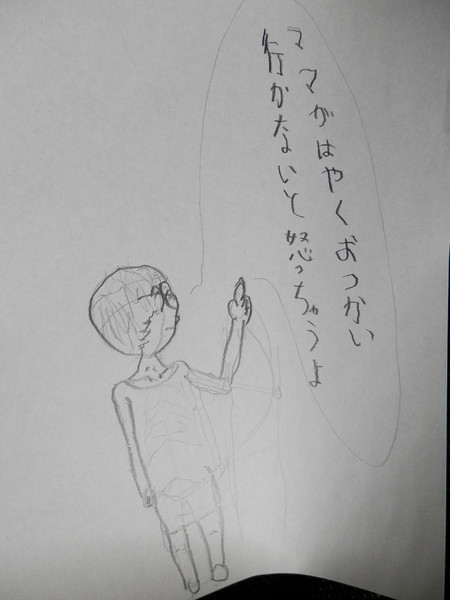 ママがはやくおつかい
行かないと怒っちゃうよ